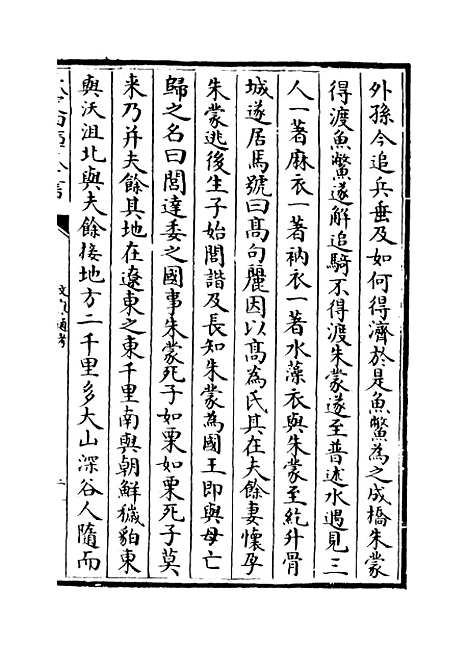 外孫今追兵垂及如何得濟於是魚鱉為之成橋朱蒙
得渡魚鱉遂解追騎不得渡朱蒙遂至普述水遇見三
人一著麻衣一著衲衣一著水藻衣與朱蒙至紇升骨
城遂居焉號曰髙句麗因以髙為氏其在夫餘妻懷孕
朱蒙逃後生子始閭諧及長知朱蒙為國王即與母亡
歸之名曰閭達委之國事朱蒙死子如栗如栗死子莫
来乃并夫餘其地在遼東之東千里南與朝鮮穢貊東
與沃沮北與夫餘接地方二千里多大山深谷人隨而
文獻通考